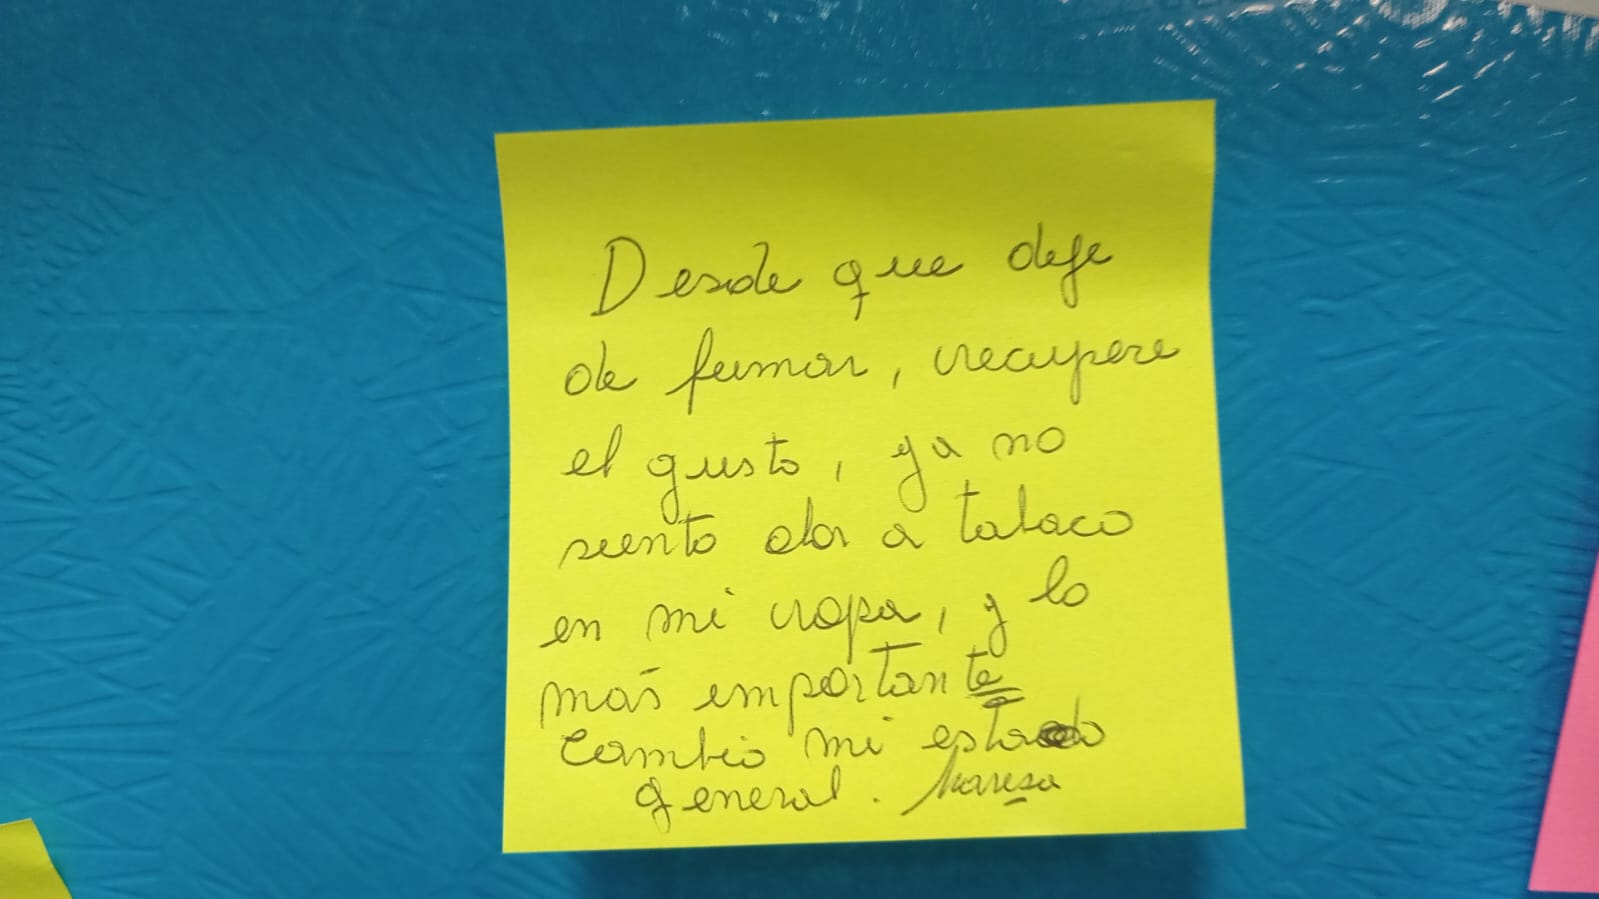 Desde que deje
de fumar, recupere
el gusto, ya no
siento olor a tabaco
en mi ropa, y lo
más importante
cambio mi estado
general. Maresa